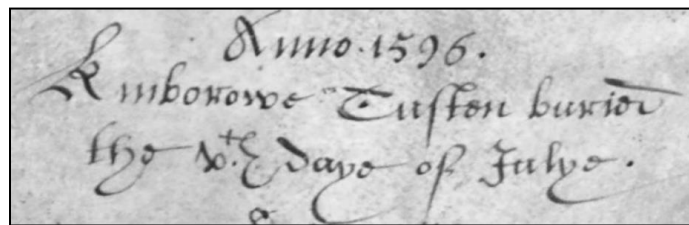 Anno. 1596.
Kinborowe Tusten buried
the vth daye of Julye.